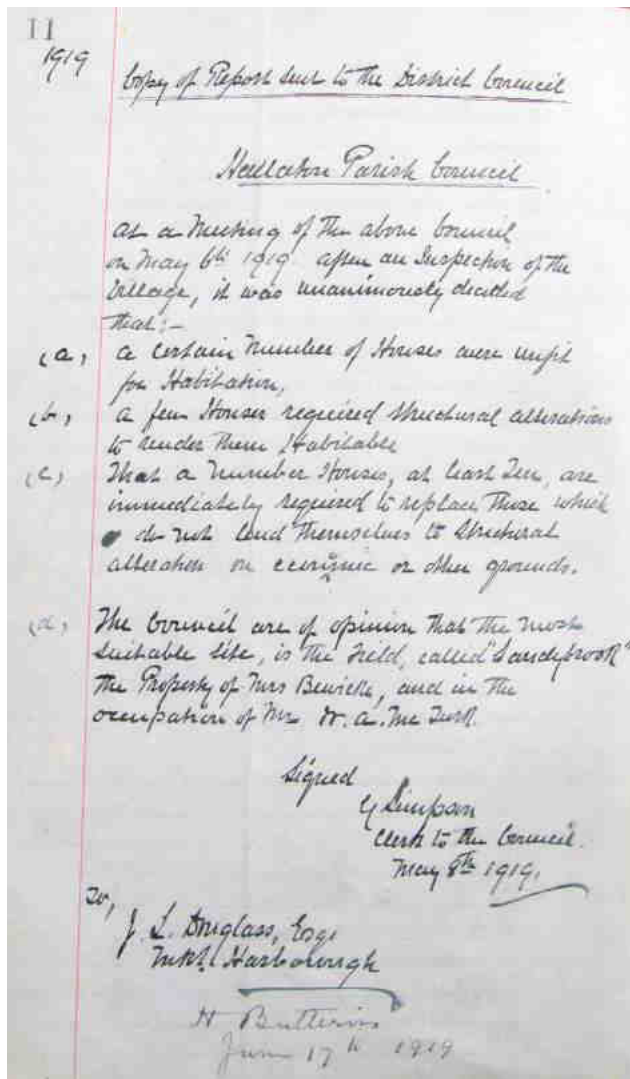 11
1919
Copy of Report sent to the District Council
Hallaton Parish Council
At a Meeting of the above Council
on May 6th 1919 after an Inspection of the
Village, it was unanimously decided
that:-
(a) a certain number of Houses were unfit
for Habitation,
(b) a few Houses required structural alterations
to render them Habitable
(c) That a number Houses, at least Ten, are
immediately required to replace those which
do not lend themselves to structural
alteration on economic or other grounds.
(d) The Council are of opinion that the most
suitable site, is the Field, called "Sandybrook"
the Property of Mrs Bewicke, and in the
occupation of Mr W. A. McTurk.
Signed
G Simpson
Clerk to the Council.
May 8th 1919.
To,
J. L. Douglass, Esqr
Mkt. Harborough
H Butteriss
June 17th 1919